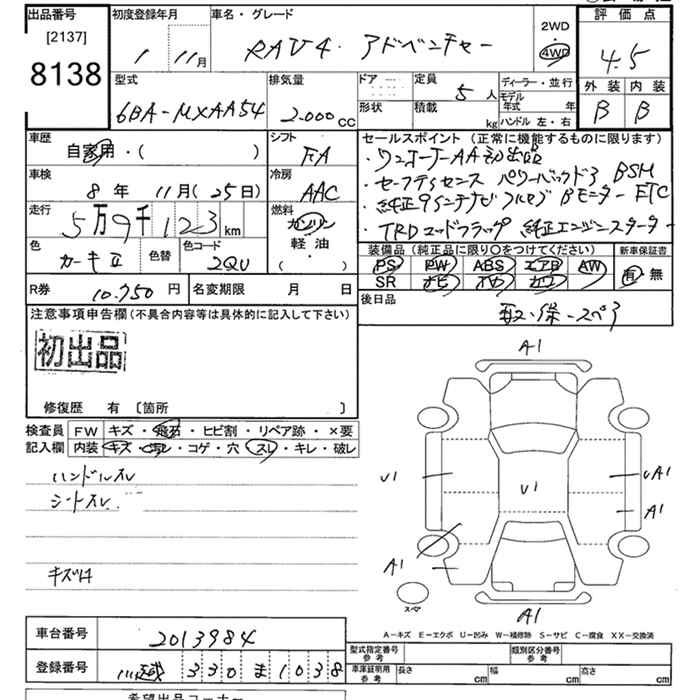 出品番号 初度登録年月 車名・グレード 2WD 評価点
[2137]
8138 1 11月 RAV4・アドベンチャー 4WD 4.5
型式 排気量 ドア 定員 ディーラー・並行 外装 内装
6BA-MXAA54 2.000CC 5人 モデル年式 年 B B
形状 積載 kg ハンドル 左・右
車歴 シフト セールスポイント(正常に機能するものに限ります)
自家用・( ) FA ・ワンオーナーAA初出品
車検 冷房 ・セーフティセンス パワーバックドア BSM
8年 11月(25日) AAC ・純正9インチナビ フルセグ Bモニター ETC
走行 燃料 ・TRDマッドフラップ 純正エンジンスターター
5万9千123km ガソリン
色 色替 色コード 軽油 装備品(純正品に限り〇をつけてください) 新車保証書
2QU ( ) PS PW ABS エアB AW 有・無
SR ナビ カワ
R券 10.750円 名変期限 月 日 後日品
取・保・スペア
注意事項申告欄(不具合内容等は具体的に記入して下さい)
初出品
修復歴 有 〔箇所 〕
検査員 FW キズ・飛石・ヒビ割・リペア跡・×要
記入欄 内装 キズ・汚レ・コゲ・穴・スレ・キレ・破レ
ハンドルスレ
シートスレ
A1
U1 U1 UA1
A1
A1
スペア
A1
A-キズ E-エクボ U-凹み W-補修跡 S-サビ C-腐食 XX-交換済
車台番号 2013984
型式指定番号参考 類別区分番号参考
登録番号 330ま1038
車庫証明用参考 長さ cm 幅 cm 高さ cm
希望出品コーナー